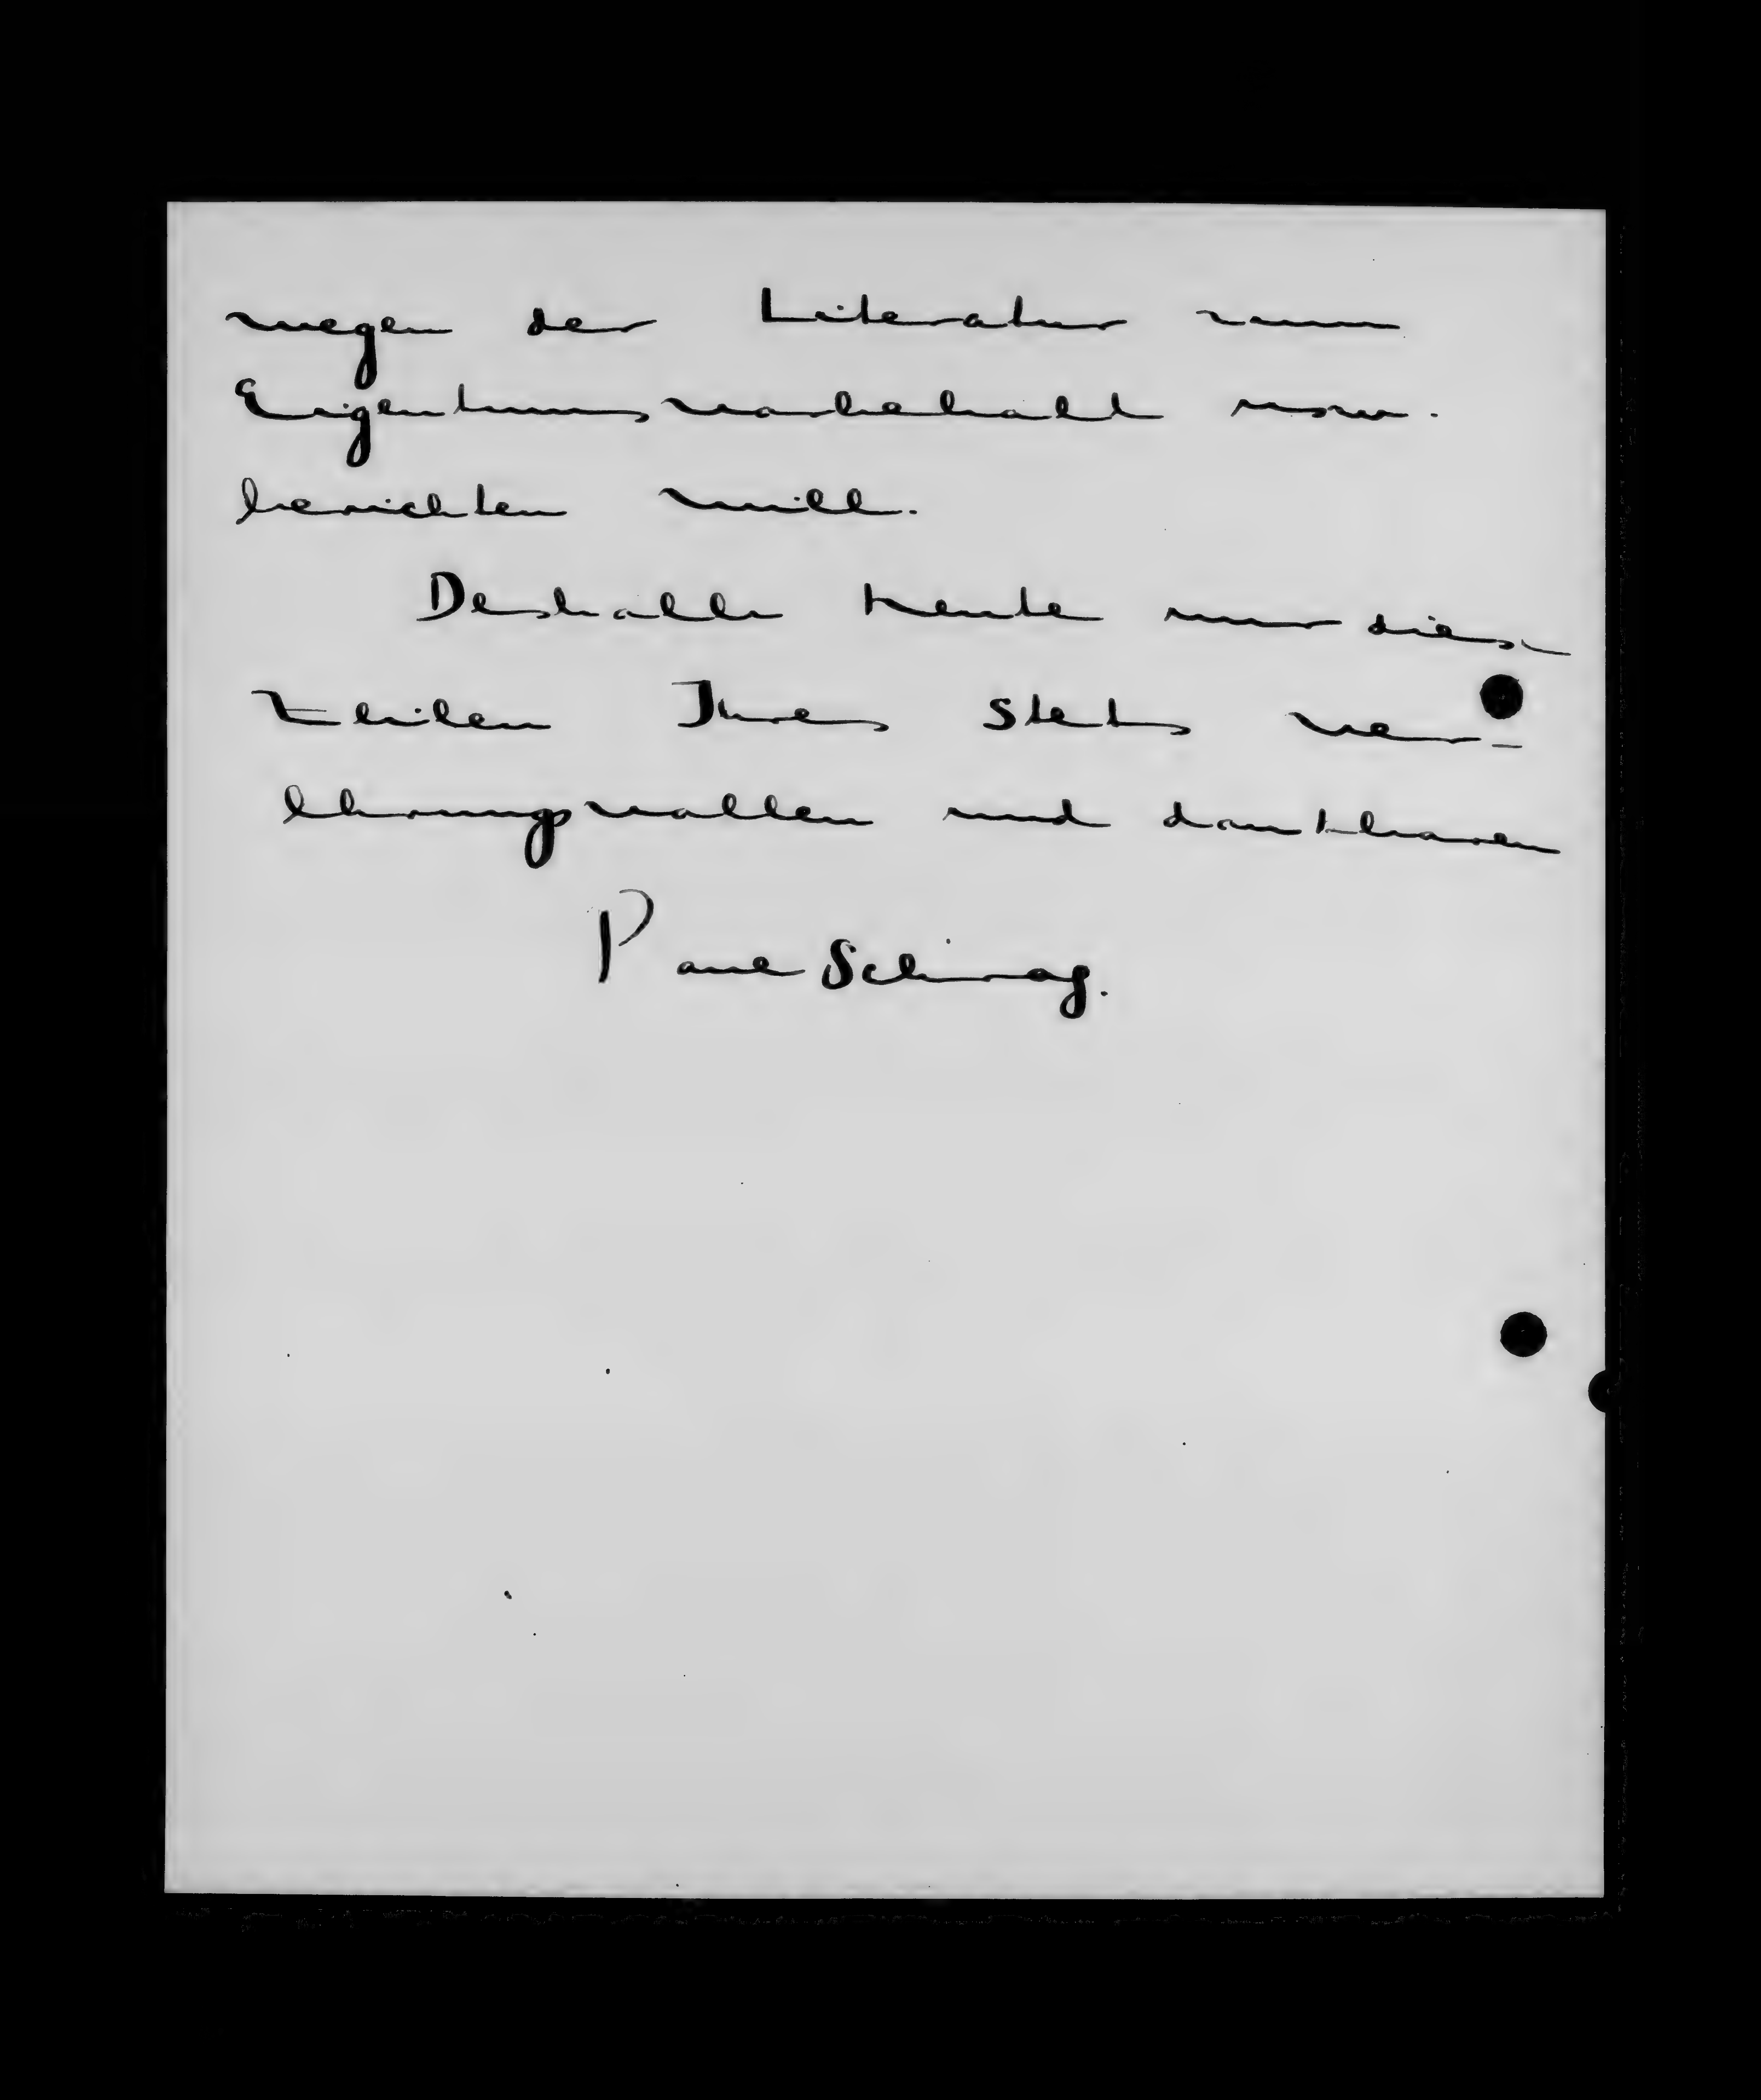 wegen der Literatur zum
Eigentumsvorbehalt usw.
berichten will.
Deshalb heute nur diese
Zeilen Ihres stets ver-
ehrungsvollen und dankbaren
Paul Schrag.